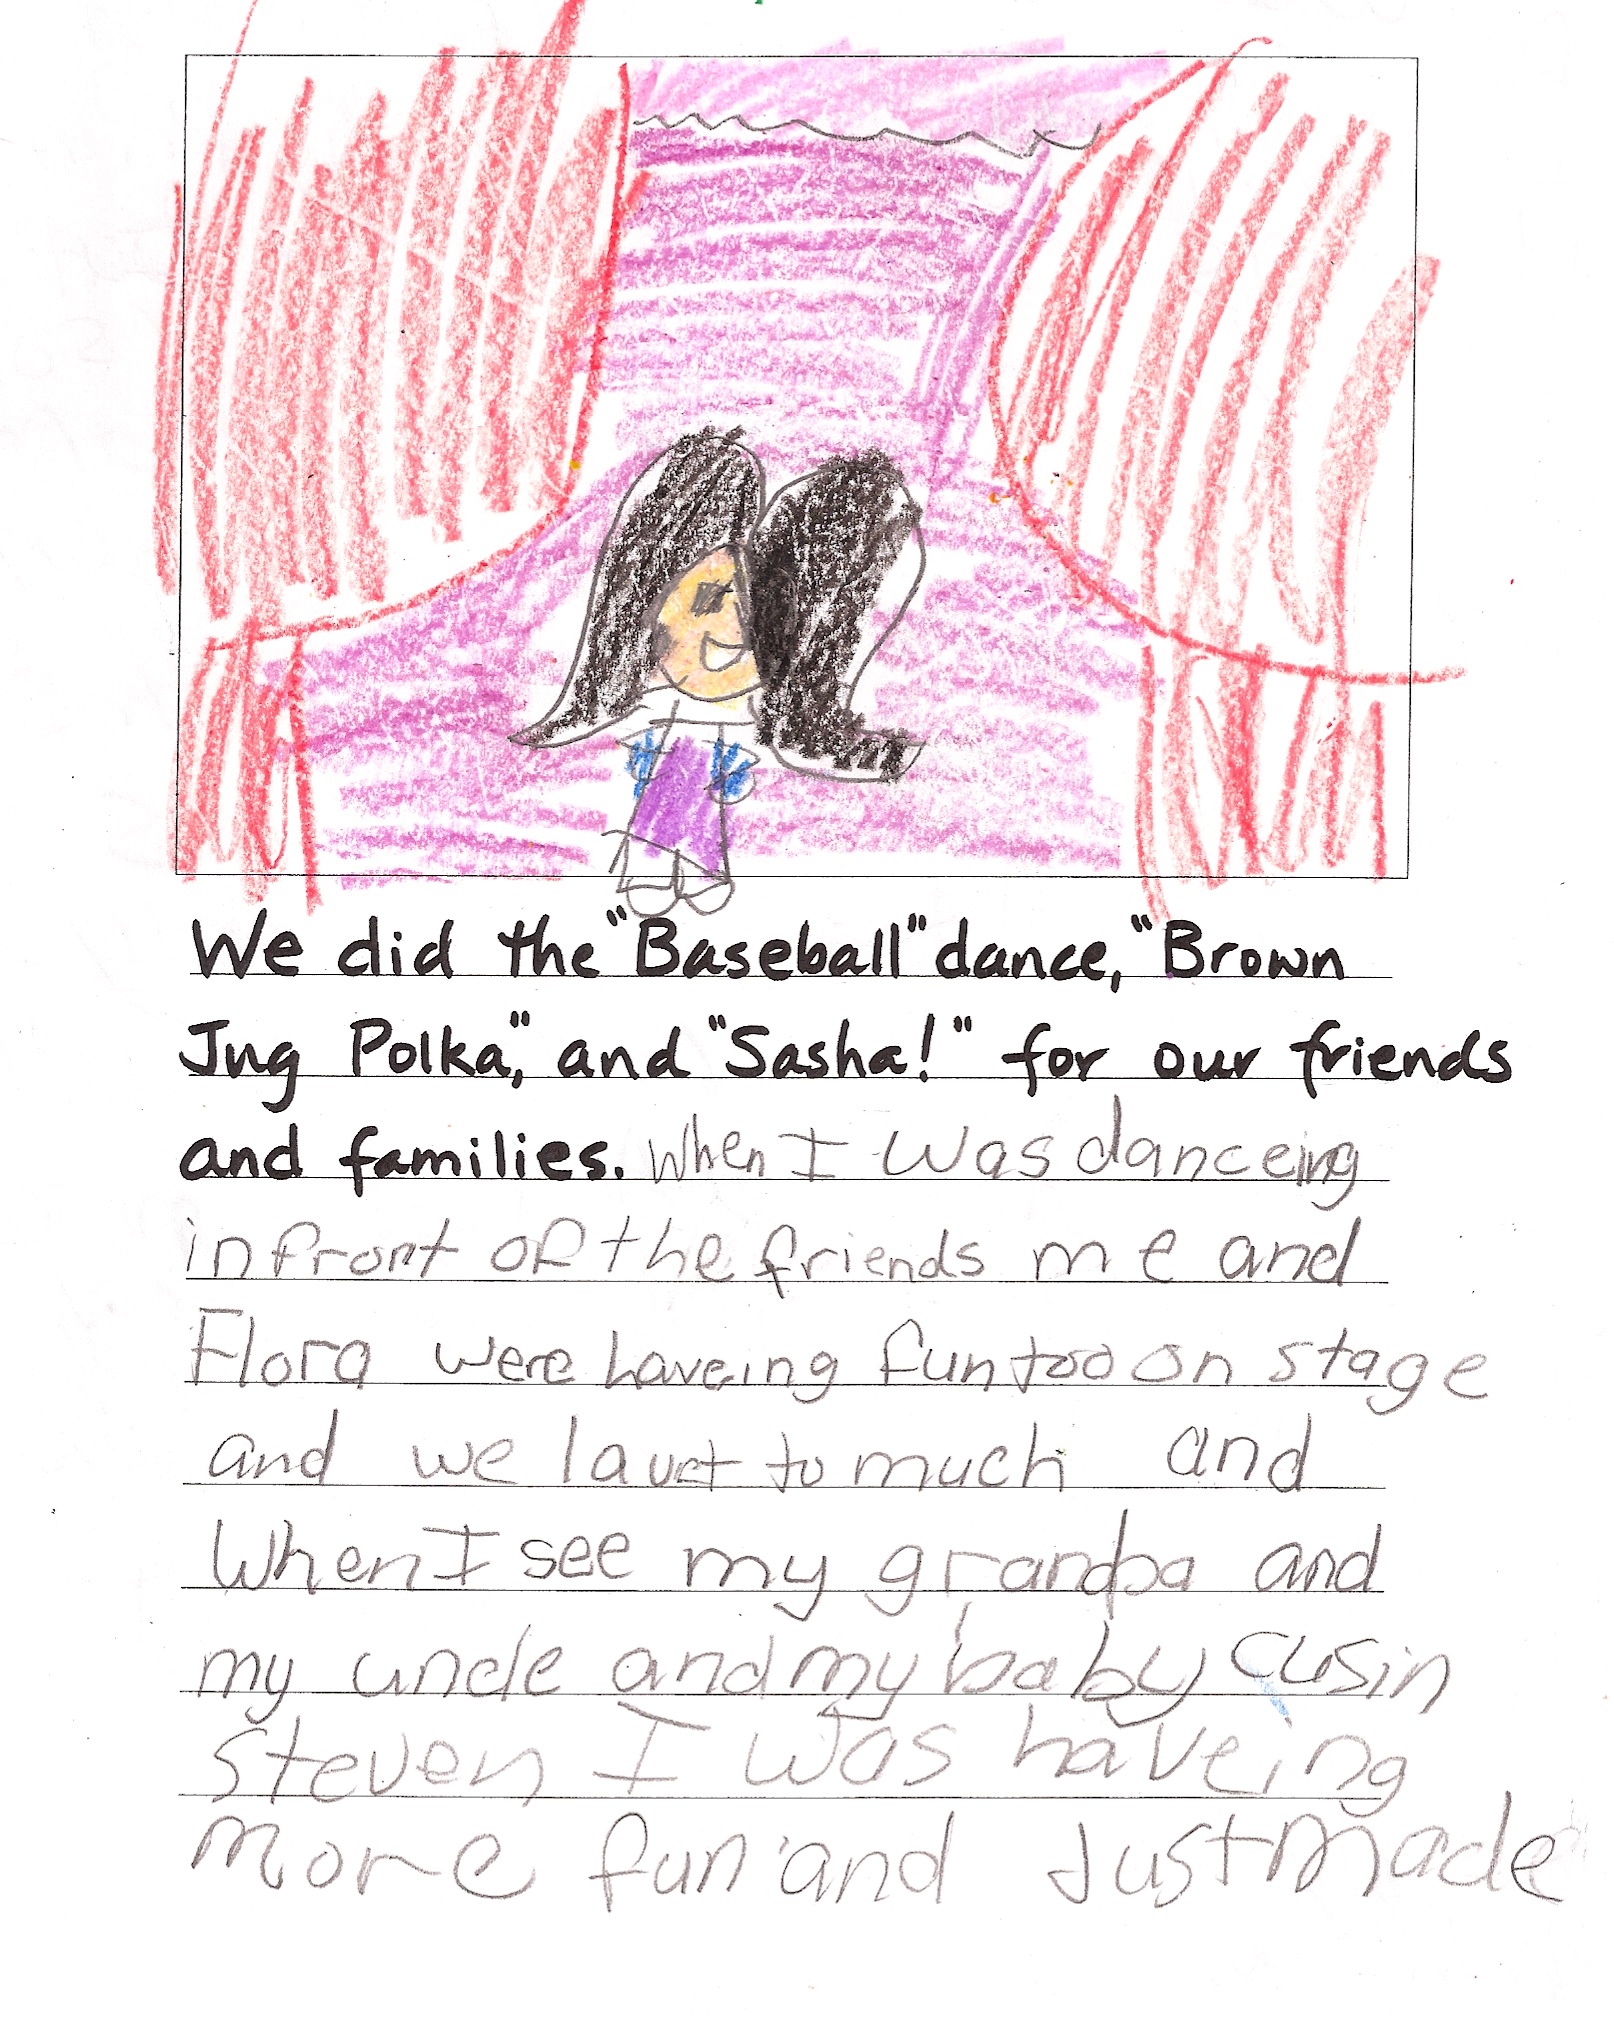 We did the "Baseball" dance, "Brown
Jug Polka," and "Sasha!" for our friends
and families. When I was danceing
in front of the friends me and
Flora were haveing fun too on stage
and we lauet to much and
When I see my grandpa and
my uncle and my baby cusin
Steven I was haveing
more fun and Just made